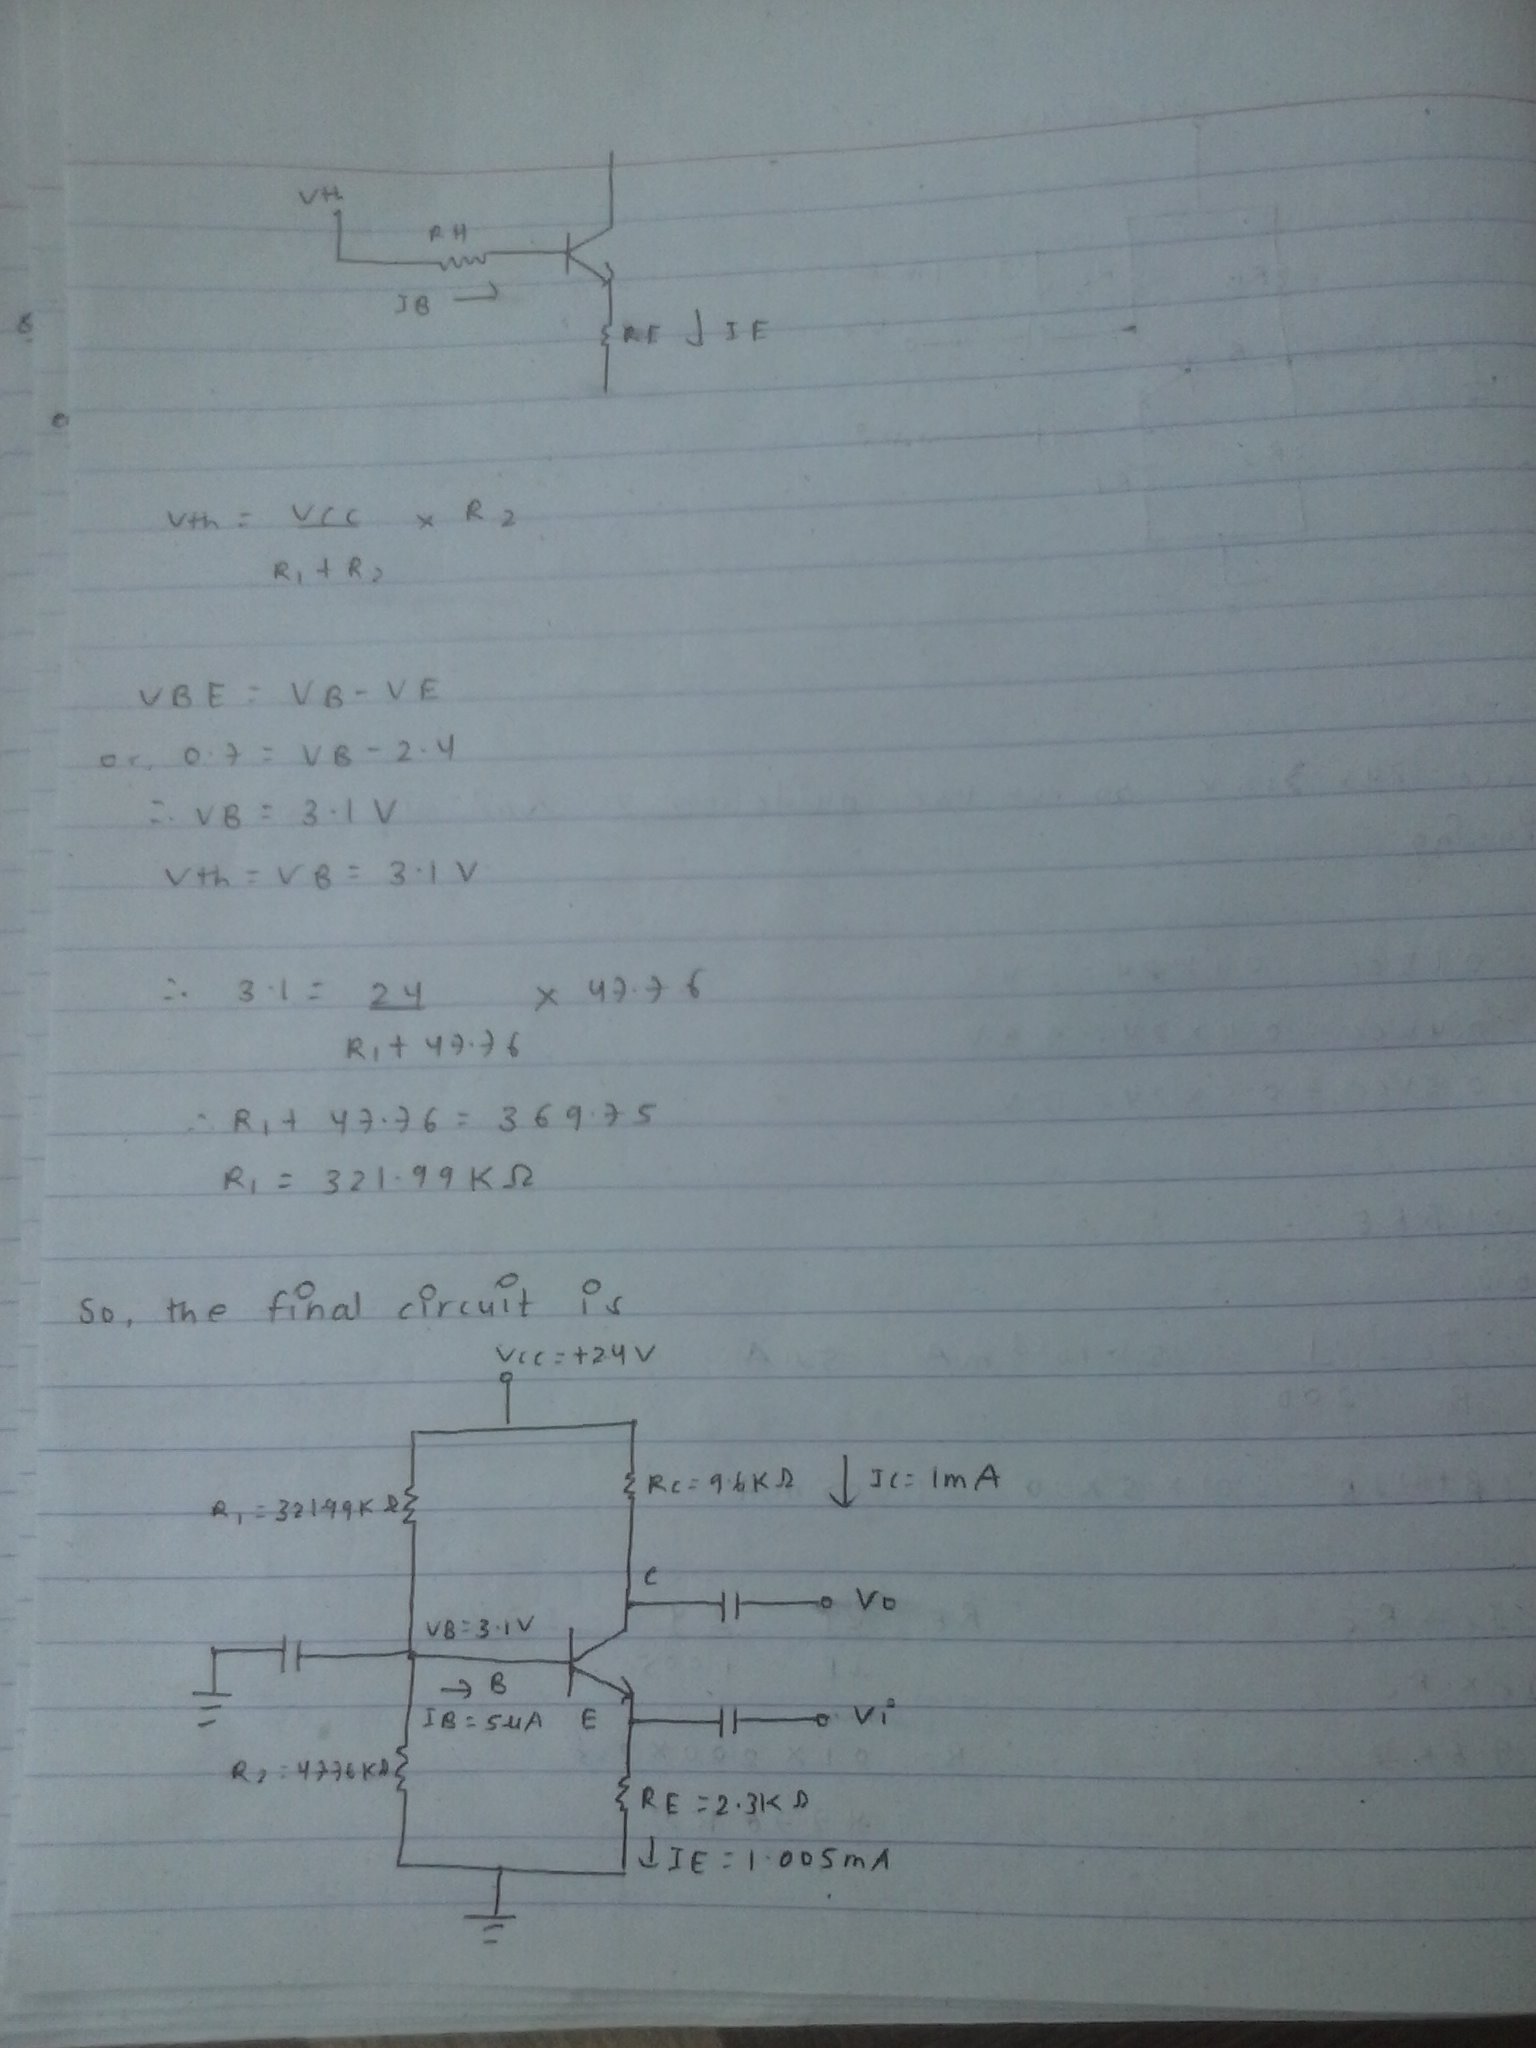 Vth
RH
IB →
RE ↓ IE
Vth = VCC × R2
R1 + R2
VBE = VB - VE
or, 0.7 = VB - 2.4
∴ VB = 3.1 V
Vth = VB = 3.1 V
∴ 3.1 = 24 × 47.76
R1 + 47.76
∴ R1 + 47.76 = 369.75
R1 = 321.99 KΩ
So, the final circuit is
VCC = +24V
R1 = 321.99KΩ
RC = 9.6KΩ ↓ IC = 1mA
C
Vo
VB = 3.1V
→ B
IB = 5uA E
Vi
R2 = 47.76KΩ
RE = 2.3KΩ
↓ IE = 1.005mA